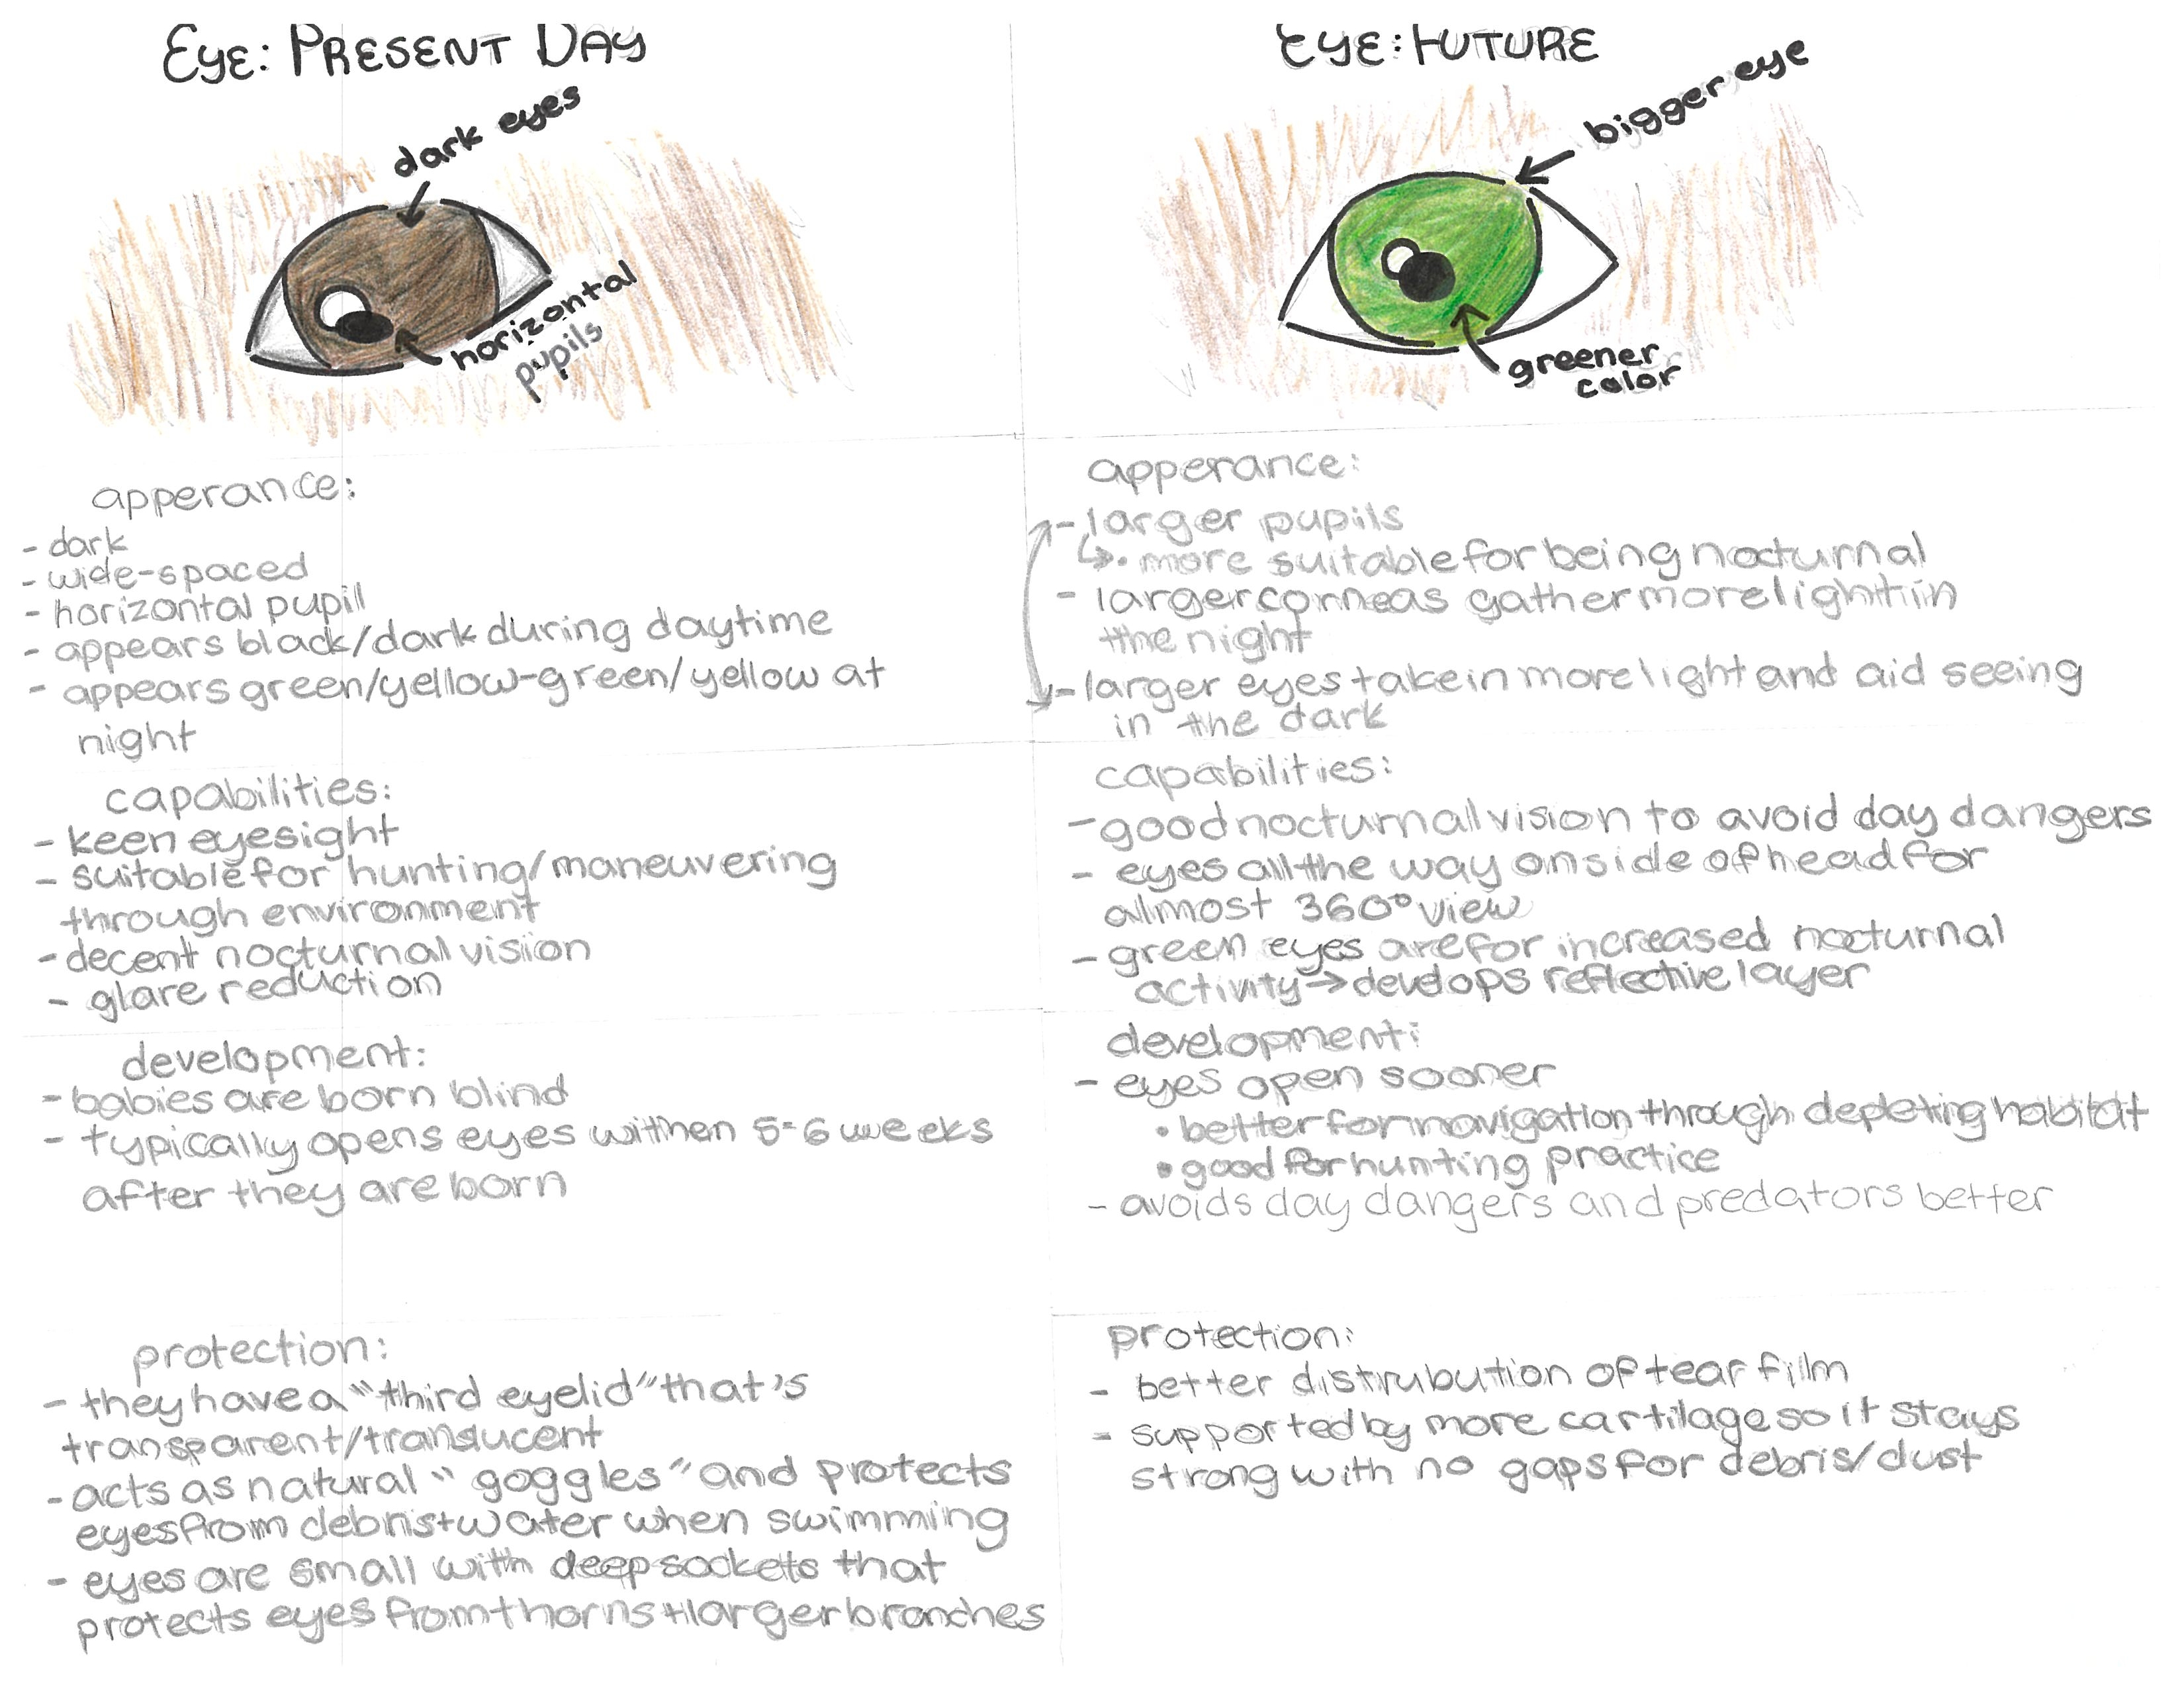 EYE: PRESENT DAY
dark eyes
horizontal
pupils
apperance:
- dark
- wide-spaced
- horizontal pupil
- appears black/dark during daytime
- appears green/yellow-green/yellow at
night
capabilities:
- keen eyesight
- suitable for hunting/maneuvering
through environment
- decent nocturnal vision
- glare reduction
development:
- babies are born blind
- typically opens eyes withen 5-6 weeks
after they are born
protection:
- they have a "third eyelid" that's
transparent/translucent
- acts as natural "goggles" and protects
eyes from debris + water when swimming
- eyes are small with deep sockets that
protects eyes from thorns + larger branches
EYE: FUTURE
bigger eye
greener
color
apperance:
- larger pupils
↳• more suitable for being nocturnal
- larger corneas gather more light in
the night
- larger eyes take in more light and aid seeing
in the dark
capabilities:
- good nocturnal vision to avoid day dangers
- eyes all the way on side of head for
almost 360° view
- green eyes are for increased nocturnal
activity → develops reflective layer
development:
- eyes open sooner
• better for navigation through depleting habitat
• good for hunting practice
- avoids day dangers and predators better
protection:
- better distrubution of tear film
- supported by more cartilage so it stays
strong with no gaps for debris/dust